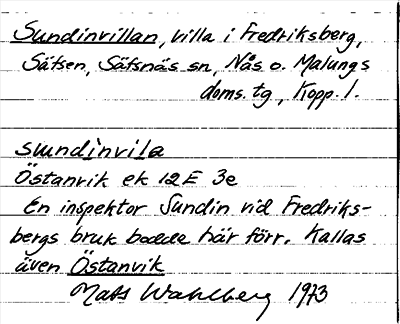 Sundinvillan, villa i Fredriksberg,
Säfsen, Säfsnäs sn, Nås o. Malungs
doms. tg, Kopp. l.
sundinvila
Östanvik ek 12E 3e
En inspektor Sundin vid Fredriks-
bergs bruk bodde här förr. Kallas
även Östanvik
Mats Wahlberg 1973